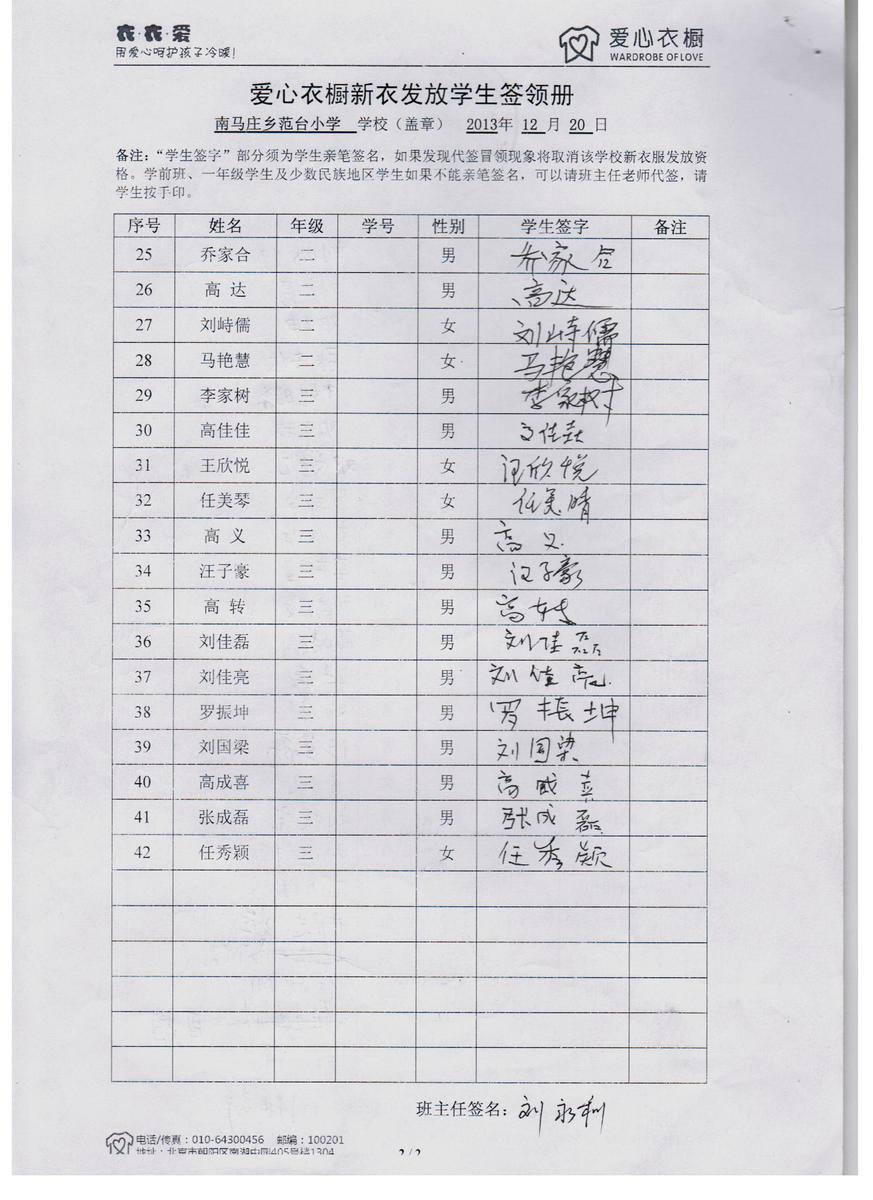 衣·衣·爱
用爱心呵护孩子冷暖!
爱心衣橱
WARDROBE OF LOVE
爱心衣橱新衣发放学生签领册
南马庄乡范台小学 学校（盖章） 2013年 12 月 20 日
备注：“学生签字”部分须为学生亲笔签名，如果发现代签冒领现象将取消该学校新衣服发放资
格。学前班、一年级学生及少数民族地区学生如果不能亲笔签名，可以请班主任老师代签，请
学生按手印。
序号 姓名 年级 学号 性别 学生签字 备注
25 乔家合 二 男 乔家合
26 高 达 二 男 高达
27 刘峙儒 二 女 刘峙儒
28 马艳慧 二 女 马艳慧
29 李家树 三 男 李家树
30 高佳佳 三 男
31 王欣悦 三 女 汪欣悦
32 任美琴 三 女 任美晴
33 高 义 三 男 高义
34 汪子豪 三 男 汪子豪
35 高 转 三 男 高
36 刘佳磊 三 男 刘佳磊
37 刘佳亮 三 男 刘佳亮
38 罗振坤 三 男 罗振坤
39 刘国梁 三 男 刘国梁
40 高成喜 三 男 高成喜
41 张成磊 三 男 张成磊
42 任秀颖 三 女 任秀颖
班主任签名：刘永
电话/传真：010-64300456 邮编：100201
地址：北京市朝阳区南湖中园405号楼1304
2 / 2